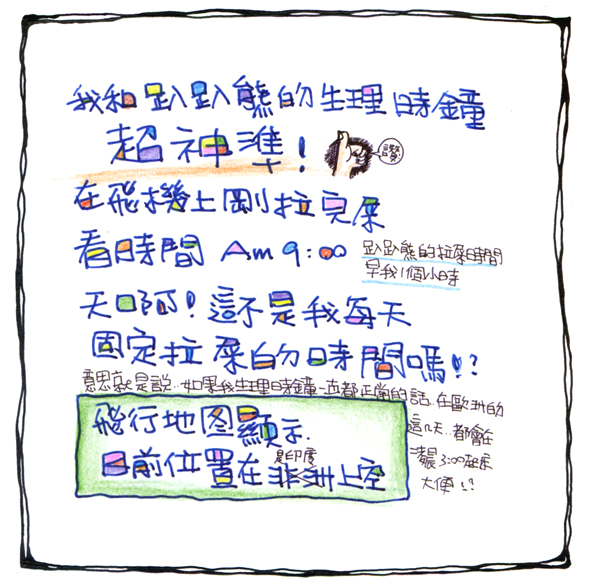 我和趴趴熊的生理時鐘
超神準!
讚!
在飛機上剛拉完屎
看時間 Am 9:00
趴趴熊的拉屎時間
早我1個小時
天口阿!這不是我每天
固定拉屎的時間嗎!?
意思就是說..如果我生理時鐘一直都正常的話.在歐洲的
這几天..都會在
凌晨3:00起床
大便!?
飛行地图顯示.
目前位置在非洲上空
是印度